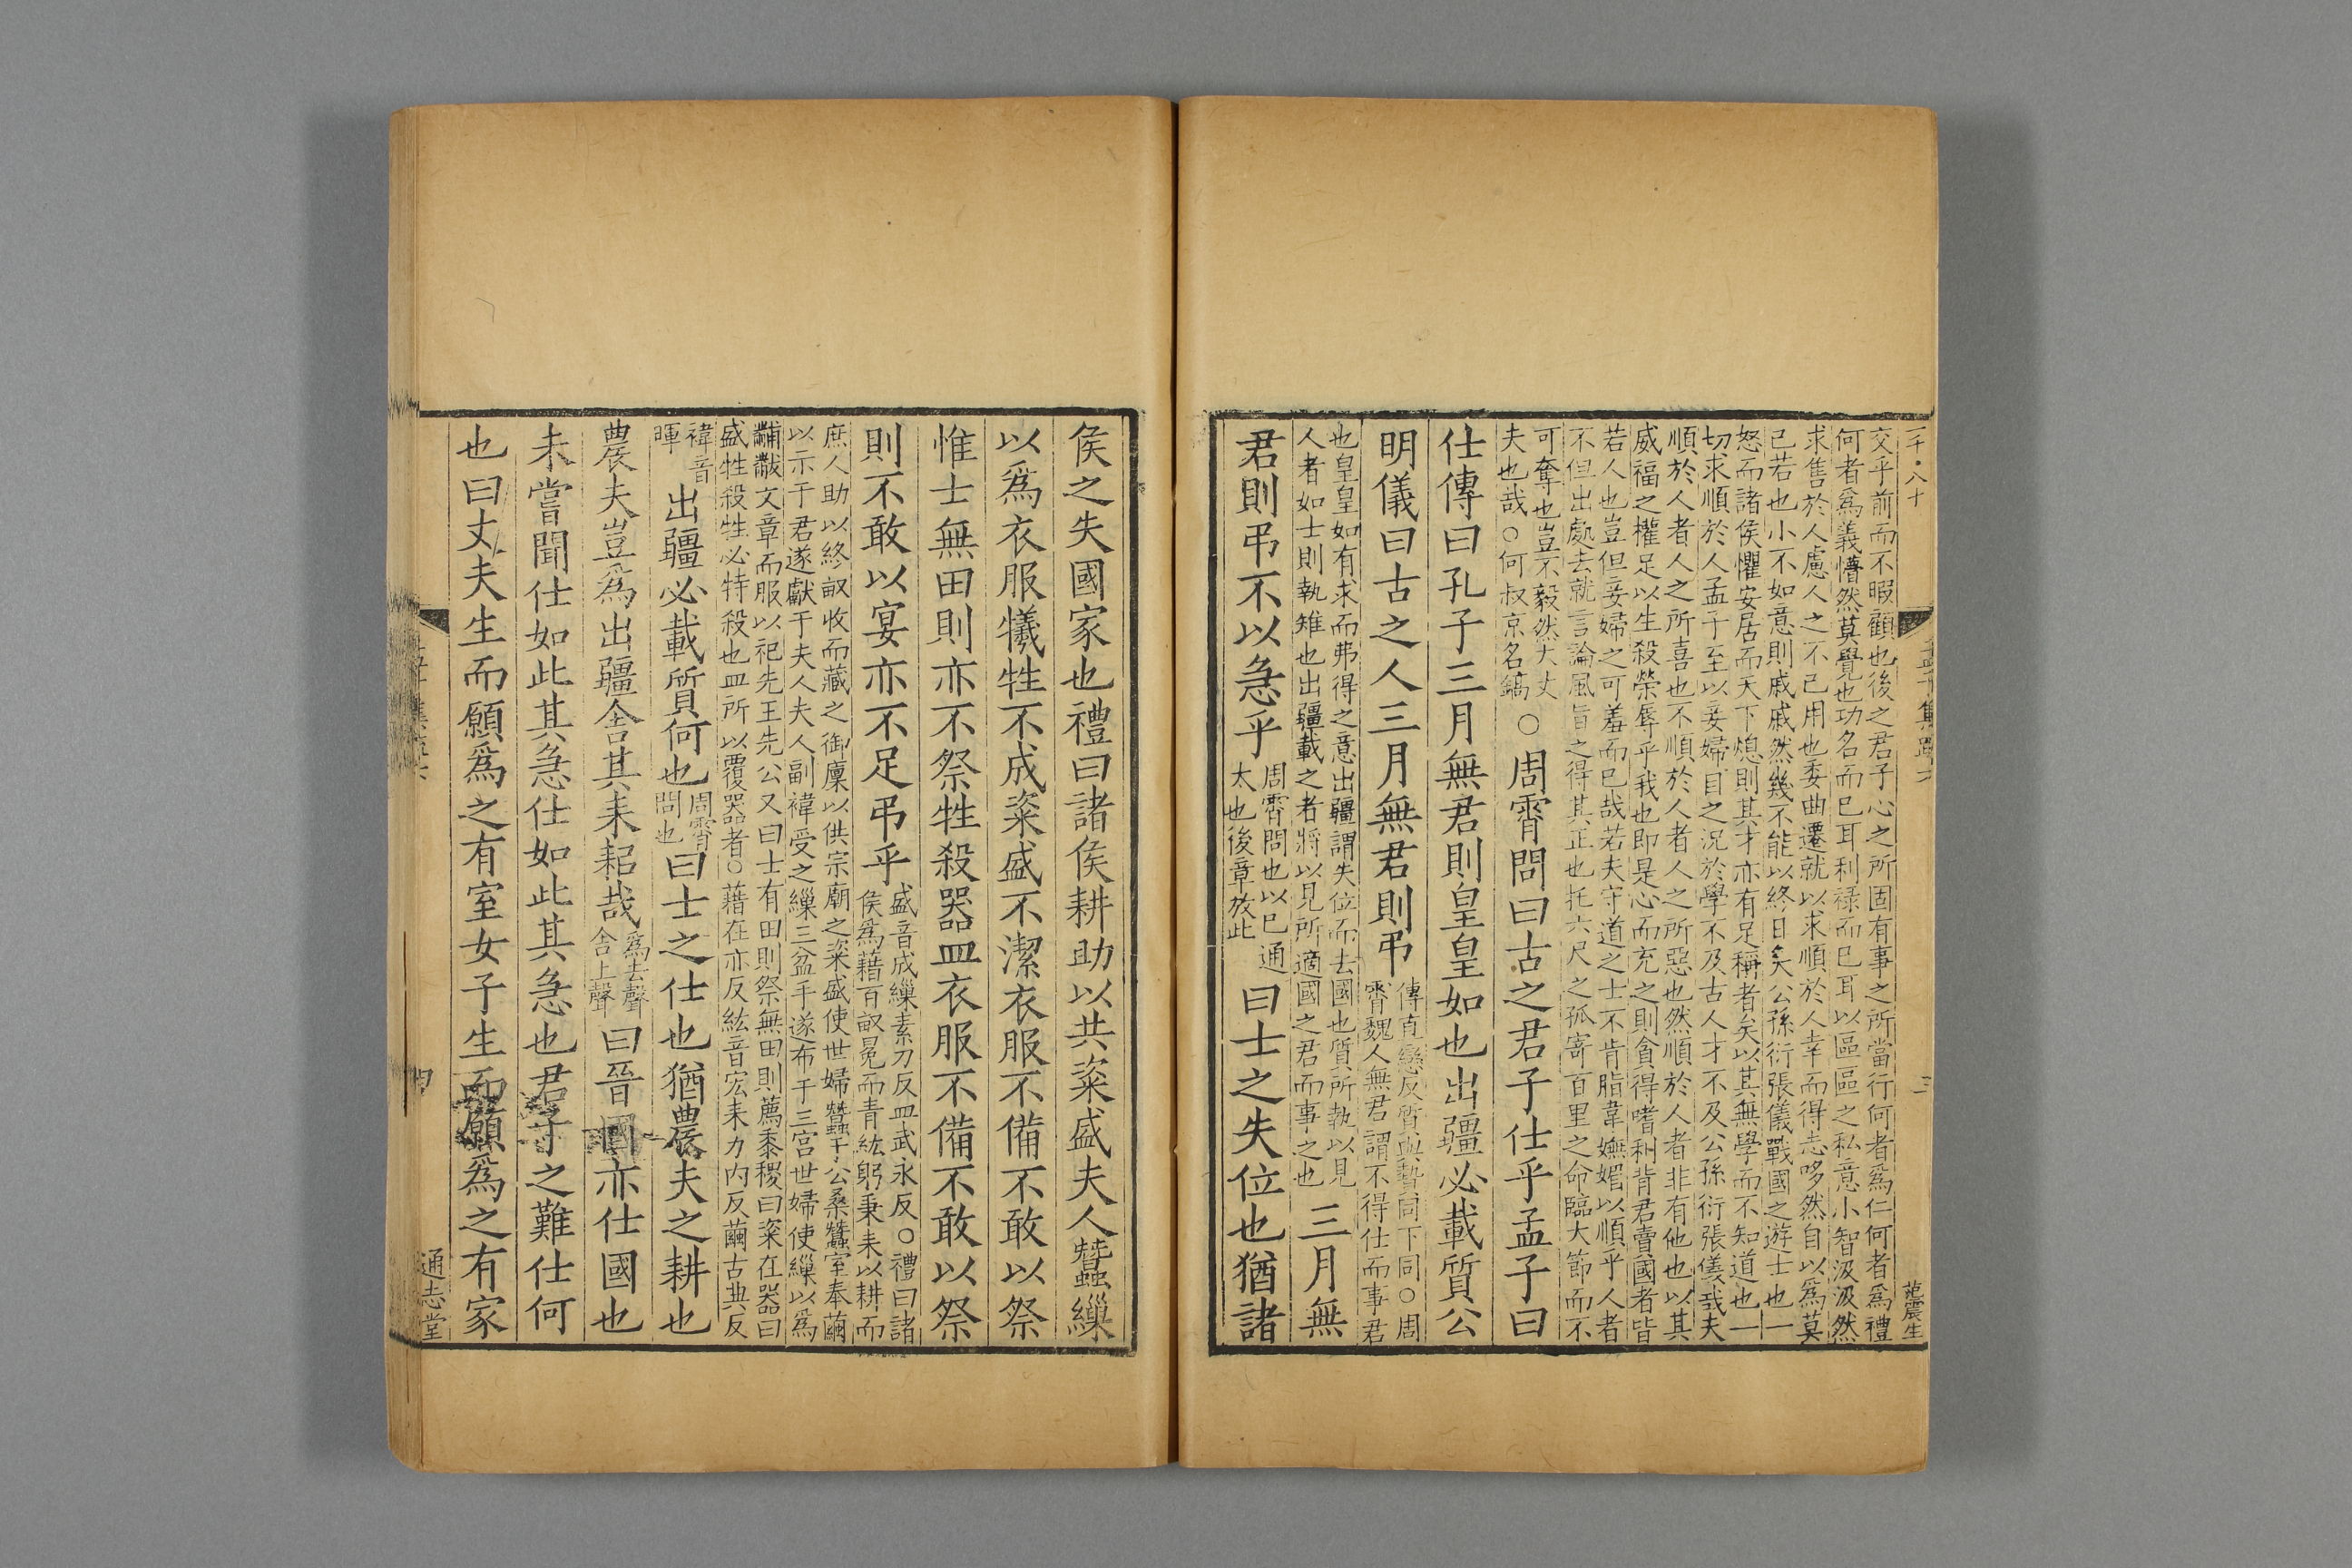 二千八十
范震生
交乎前而不暇顧也後之君子心之所固有事之所當行何者爲仁何者爲禮
何者爲義懵然莫覺也功名而巳耳利祿而巳耳以區區之私意小智汲汲然
求售於人慮人之不己用也委曲遷就以求順於人幸而得志哆然自以爲莫
己若也小不如意則戚戚然幾不能以終日矣公孫衍張儀戰國之遊士也一
怒而諸侯懼安居而天下熄則其才亦有足稱者矣以其無學而不知道也一
切求順於人孟子至以妾婦目之況於學不及古人才不及公孫衍張儀哉夫
順於人者人之所喜也不順於人者人之所惡也然順於人者非有他也以其
威福之權足以生殺榮辱乎我也即是心而充之則貪得嗜利背君賣國者皆
若人也豈但妾婦之可羞而已哉若夫守道之士不肯脂韋嫵媚以順乎人者
不但出處去就言論風旨之得其正也托六尺之孤寄百里之命臨大節而不
可奪也豈不毅然大丈
夫也哉○何叔京名鎬
○周霄問曰古之君子仕乎孟子曰
仕傳曰孔子三月無君則皇皇如也出疆必載質公
明儀曰古之人三月無君則弔
傳直戀反質與贄同下同○周
霄魏人無君謂不得仕而事君
也皇皇如有求而弗得之意出疆謂失位而去國也質所執以見
人者如士則執雉也出疆載之者將以見所適國之君而事之也
三月無
君則弔不以急乎
周霄問也以巳通
太也後章放此
曰士之失位也猶諸
侯之失國家也禮曰諸侯耕助以共粢盛夫人蠶繅
以爲衣服犧牲不成粢盛不潔衣服不備不敢以祭
惟士無田則亦不祭牲殺器皿衣服不備不敢以祭
則不敢以宴亦不足弔乎
盛音成繅素刀反皿武永反○禮曰諸
侯爲藉百畝冕而青紘躬秉耒以耕而
庶人助以終畝收而藏之御廩以供宗廟之粢盛使世婦蠶于公桑蠶室奉繭
以示于君遂獻于夫人夫人副褘受之繅三盆手遂布于三宮世婦使繅以爲
黼黻文章而服以祀先王先公又曰士有田則祭無田則薦黍稷曰粢在器曰
盛牲殺牲必特殺也皿所以覆器者○藉在亦反紘音宏耒力內反繭古典反
褘音
暉
出疆必載質何也
周霄
問也
曰士之仕也猶農夫之耕也
農夫豈爲出疆舍其耒耜哉
爲去聲
舍上聲
曰晉國亦仕國也
未嘗聞仕如此其急仕如此其急也君子之難仕何
也曰丈夫生而願爲之有室女子生而願爲之有家
通志堂